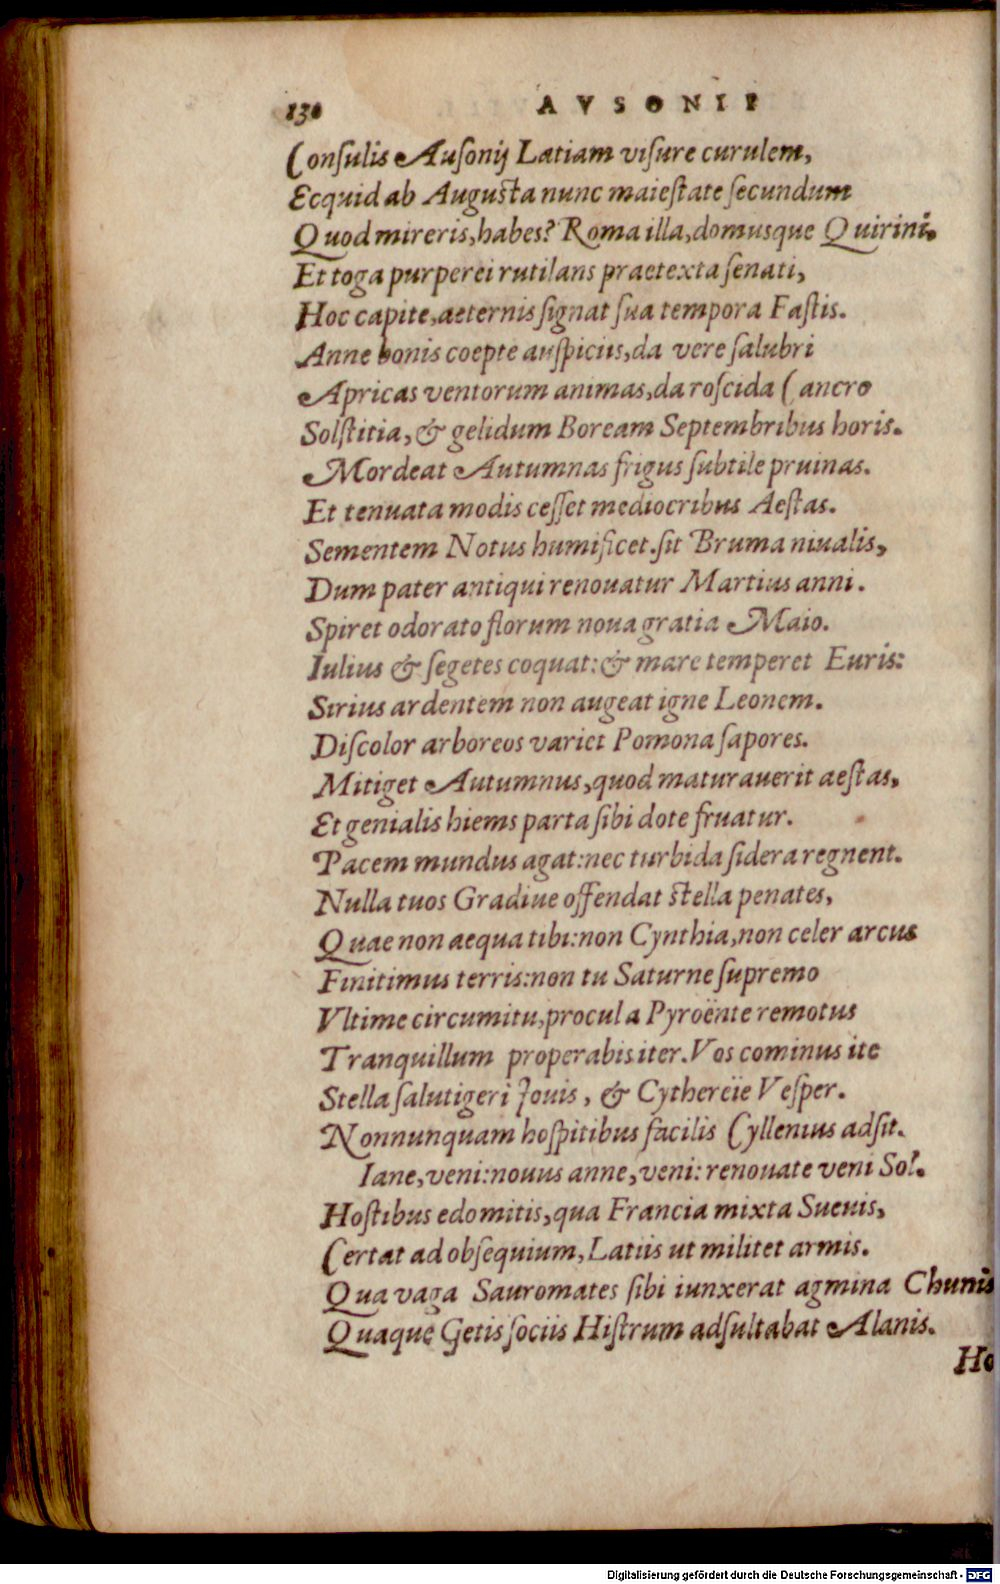 130 AVSONII
Conſulis Auſonij Latiam viſure curulem,
Ecquid ab Auguſta nunc maieſtate ſecundum
Quod mireris, habes? Roma illa, domusque Quirini.
Et toga purperei rutilans praetexta ſenati,
Hoc capite, aeternis ſignat ſua tempora Faſtis.
Anne bonis coepte auſpiciis, da vere ſalubri
Apricas ventorum animas, da roſcida Cancro
Solſtitia, & gelidum Boream Septembribus horis.
Mordeat Autumnas frigus ſubtile pruinas.
Et tenuata modis ceſſet mediocribus Aeſtas.
Sementem Notus humificet. ſit Bruma niualis,
Dum pater antiqui renouatur Martius anni.
Spiret odorato florum noua gratia Maio.
Iulius & ſegetes coquat: & mare temperet Euris:
Sirius ardentem non augeat igne Leonem.
Diſcolor arboreos variet Pomona ſapores.
Mitiget Autumnus, quod maturauerit aeſtas,
Et genialis hiems parta ſibi dote fruatur.
Pacem mundus agat: nec turbida ſidera regnent.
Nulla tuos Gradiue offendat ſtella penates,
Quae non aequa tibi: non Cynthia, non celer arcus
Finitimus terris: non tu Saturne ſupremo
Vltime circumitu, procul a Pyroënte remotus
Tranquillum properabis iter. Vos cominus ite
Stella ſalutigeri Jouis, & Cythereïe Veſper.
Nonnunquam hoſpitibus facilis Cyllenius adſit.
Iane, veni: nouus anne, veni: renouate veni Sol.
Hoſtibus edomitis, qua Francia mixta Sueuis,
Certat ad obſequium, Latiis ut militet armis.
Qua vaga Sauromates ſibi iunxerat agmina Chunis
Quaque Getis ſociis Hiſtrum adſultabat Alanis.
Ho
Digitalisierung gefördert durch die Deutsche Forschungsgemeinschaft - DFG